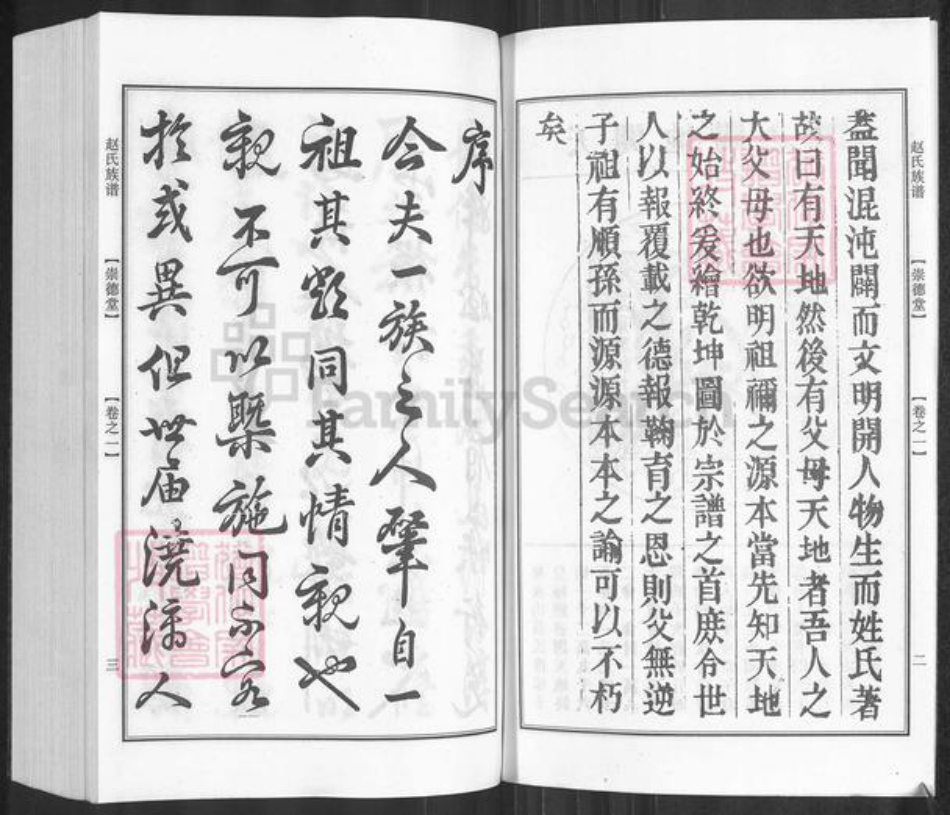 赵氏族谱
【崇德堂】
【卷之一】
二
蓋聞混沌闢而文明開人物生而姓氏著
故曰有天地然後有父母天地者吾人之
大父母也欲明祖禰之源本當先知天地
之始終爰繪乾坤圖於宗譜之首庶令世
人以報覆載之德報鞠育之恩則父無逆
子祖有順孫而源源本本之諭可以不朽
矣
序
今夫一族之人肇自一
祖其㒹同其情親也
親不可以槩施同不容
於或異但世届澆漓人
赵氏族谱
【崇德堂】
【卷之一】
三
FamilySearch